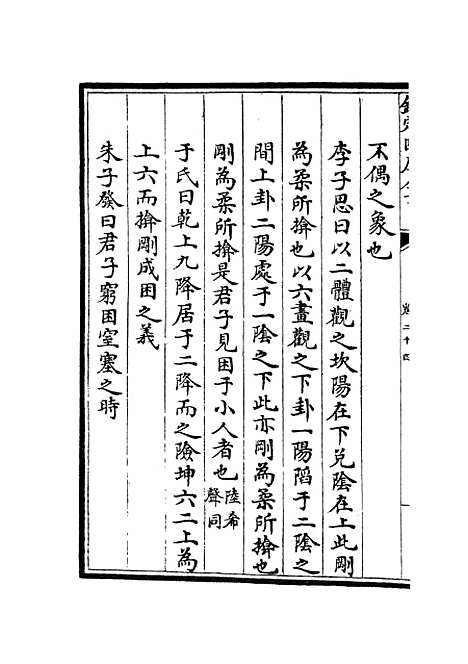 不偶之象也
李子思曰以二體觀之坎陽在下兌陰在上此剛
為柔所揜也以六畫觀之下卦一陽陷于二陰之
間上卦二陽處于一陰之下此亦剛為柔所揜也
剛為柔所揜是君子見困于小人者也陸希聲同
于氏曰乾上九降居于二降而之險坤六二上為
上六而揜剛成困之義
朱子發曰君子窮困窒塞之時
卷二十四